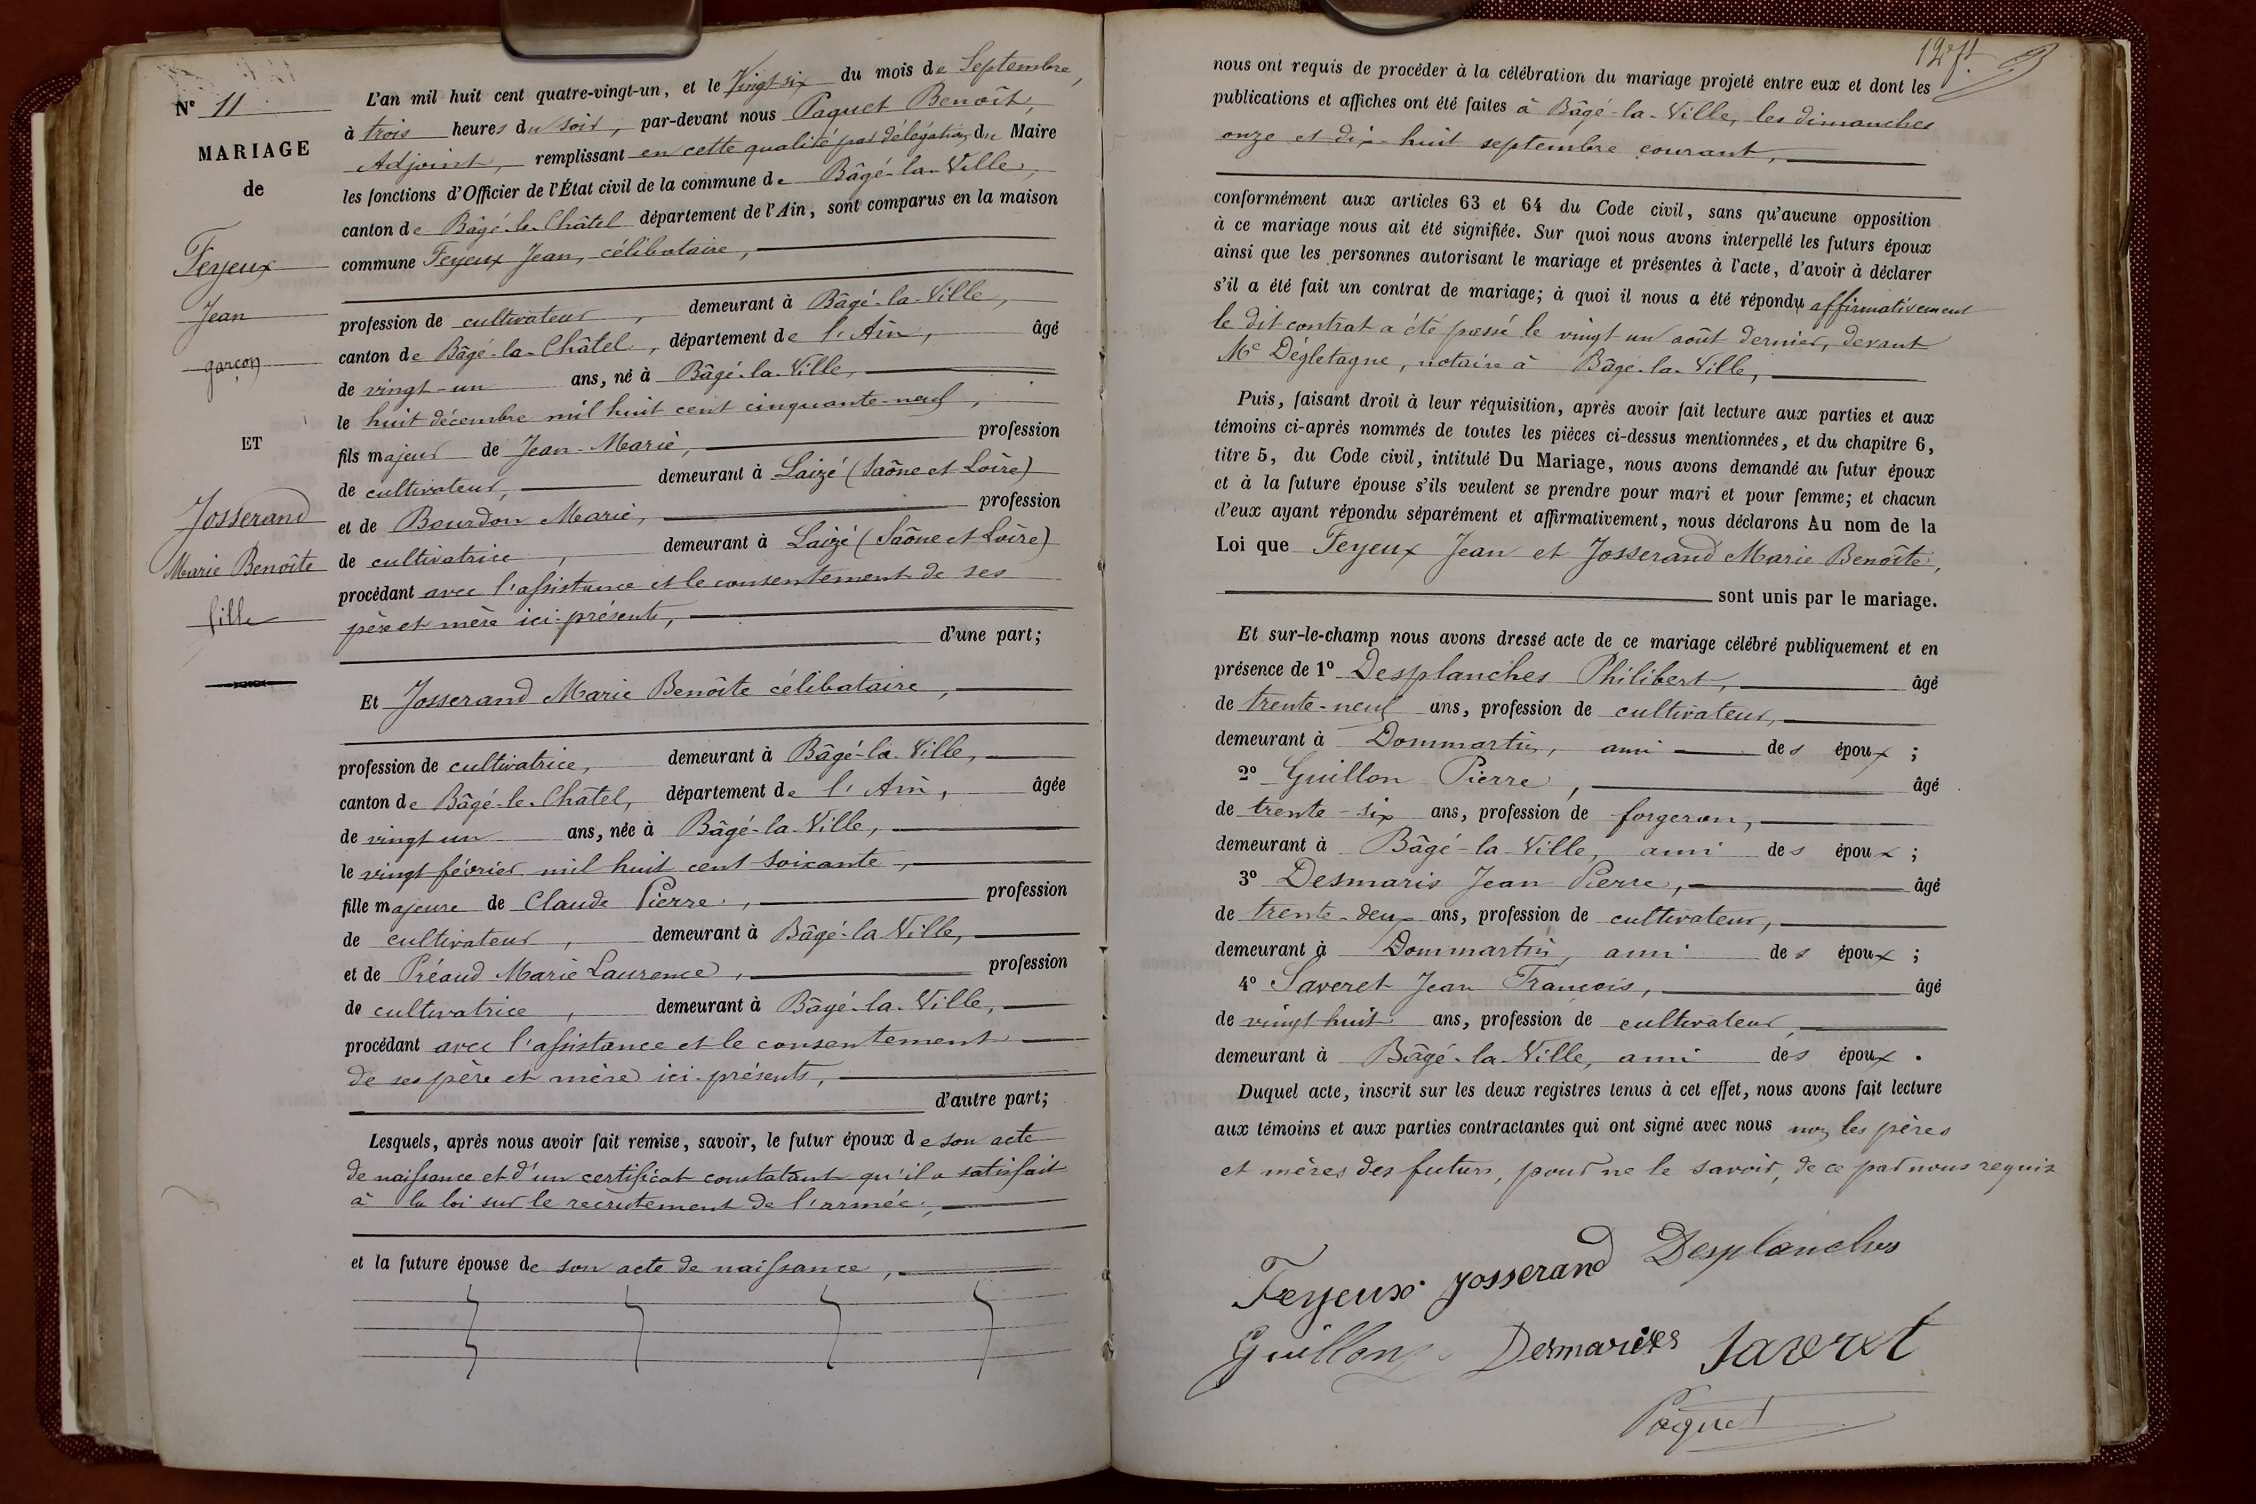 N° 11
MARIAGE
de
Feyeux
Jean
garçon
ET
Josserand
Marie Benoîte
fille
L'an mil huit cent quatre-vingt-un, et le Vingt-six du mois de Septembre,
à trois heures du soir, par-devant nous Paquet Benoît,
Adjoint, remplissant en cette qualité par délégation du Maire
les fonctions d'Officier de l'État civil de la commune de Bâgé-la-Ville,
canton de Bâgé-le-Châtel département de l'Ain, sont comparus en la maison
commune Feyeux Jean, célibataire,
profession de cultivateur, demeurant à Bâgé-la-Ville,
canton de Bâgé-le-Châtel, département de l'Ain, âgé
de vingt-un ans, né à Bâgé-la-Ville,
le huit décembre mil huit cent cinquante-neuf,
fils majeur de Jean-Marie, profession
de cultivateur, demeurant à Laizé (Saône et Loire)
et de Bourdon Marie, profession
de cultivatrice, demeurant à Laizé (Saône et Loire)
procédant avec l'assistance et le consentement de ses
père et mère ici-présents,
d'une part;
Et Josserand Marie Benoîte célibataire,
profession de cultivatrice, demeurant à Bâgé-la-Ville,
canton de Bâgé-le-Châtel, département de l'Ain, âgée
de vingt un ans, née à Bâgé-la-Ville,
le vingt février mil huit cent soixante,
fille majeure de Claude Pierre, profession
de cultivateur, demeurant à Bâgé-la-Ville,
et de Préaud Marie Laurence, profession
de cultivatrice, demeurant à Bâgé-la-Ville,
procédant avec l'assistance et le consentement
de ses père et mère ici-présents,
d'autre part;
Lesquels, après nous avoir fait remise, savoir, le futur époux de son acte
de naissance et d'un certificat constatant qu'il a satisfait
à la loi sur le recrutement de l'armée,
et la future épouse de son acte de naissance,
nous ont requis de procéder à la célébration du mariage projeté entre eux et dont les
publications et affiches ont été faites à Bâgé-la-Ville, les dimanches
onze et dix-huit septembre courant,
conformément aux articles 63 et 64 du Code civil, sans qu'aucune opposition
à ce mariage nous ait été signifiée. Sur quoi nous avons interpellé les futurs époux
ainsi que les personnes autorisant le mariage et présentes à l'acte, d'avoir à déclarer
s'il a été fait un contrat de mariage; à quoi il nous a été répondu affirmativement
le dit contrat a été passé le vingt un août dernier, devant
Me Dégletagne, notaire à Bâgé-la-Ville,
Puis, faisant droit à leur réquisition, après avoir fait lecture aux parties et aux
témoins ci-après nommés de toutes les pièces ci-dessus mentionnées, et du chapitre 6,
titre 5, du Code civil, intitulé Du Mariage, nous avons demandé au futur époux
et à la future épouse s'ils veulent se prendre pour mari et pour femme; et chacun
d'eux ayant répondu séparément et affirmativement, nous déclarons Au nom de la
Loi que Feyeux Jean et Josserand Marie Benoîte,
sont unis par le mariage.
Et sur-le-champ nous avons dressé acte de ce mariage célébré publiquement et en
présence de 1° Desplanches Philibert, âgé
de trente-neuf ans, profession de cultivateur,
demeurant à Dommartin, ami des époux;
2° Guillon Pierre, âgé
de trente-six ans, profession de forgeron,
demeurant à Bâgé-la-Ville, ami des époux;
3° Desmaris Jean Pierre, âgé
de trente-deux ans, profession de cultivateur,
demeurant à Dommartin, ami des époux;
4° Saveret Jean François, âgé
de vingt huit ans, profession de cultivateur,
demeurant à Bâgé-la-Ville, ami des époux.
Duquel acte, inscrit sur les deux registres tenus à cet effet, nous avons fait lecture
aux témoins et aux parties contractantes qui ont signé avec nous non les pères
et mères des futurs, pour ne le savoir, de ce par nous requis
Feyeux Josserand Desplanches
Guillon Desmarises Saveret
Paquet